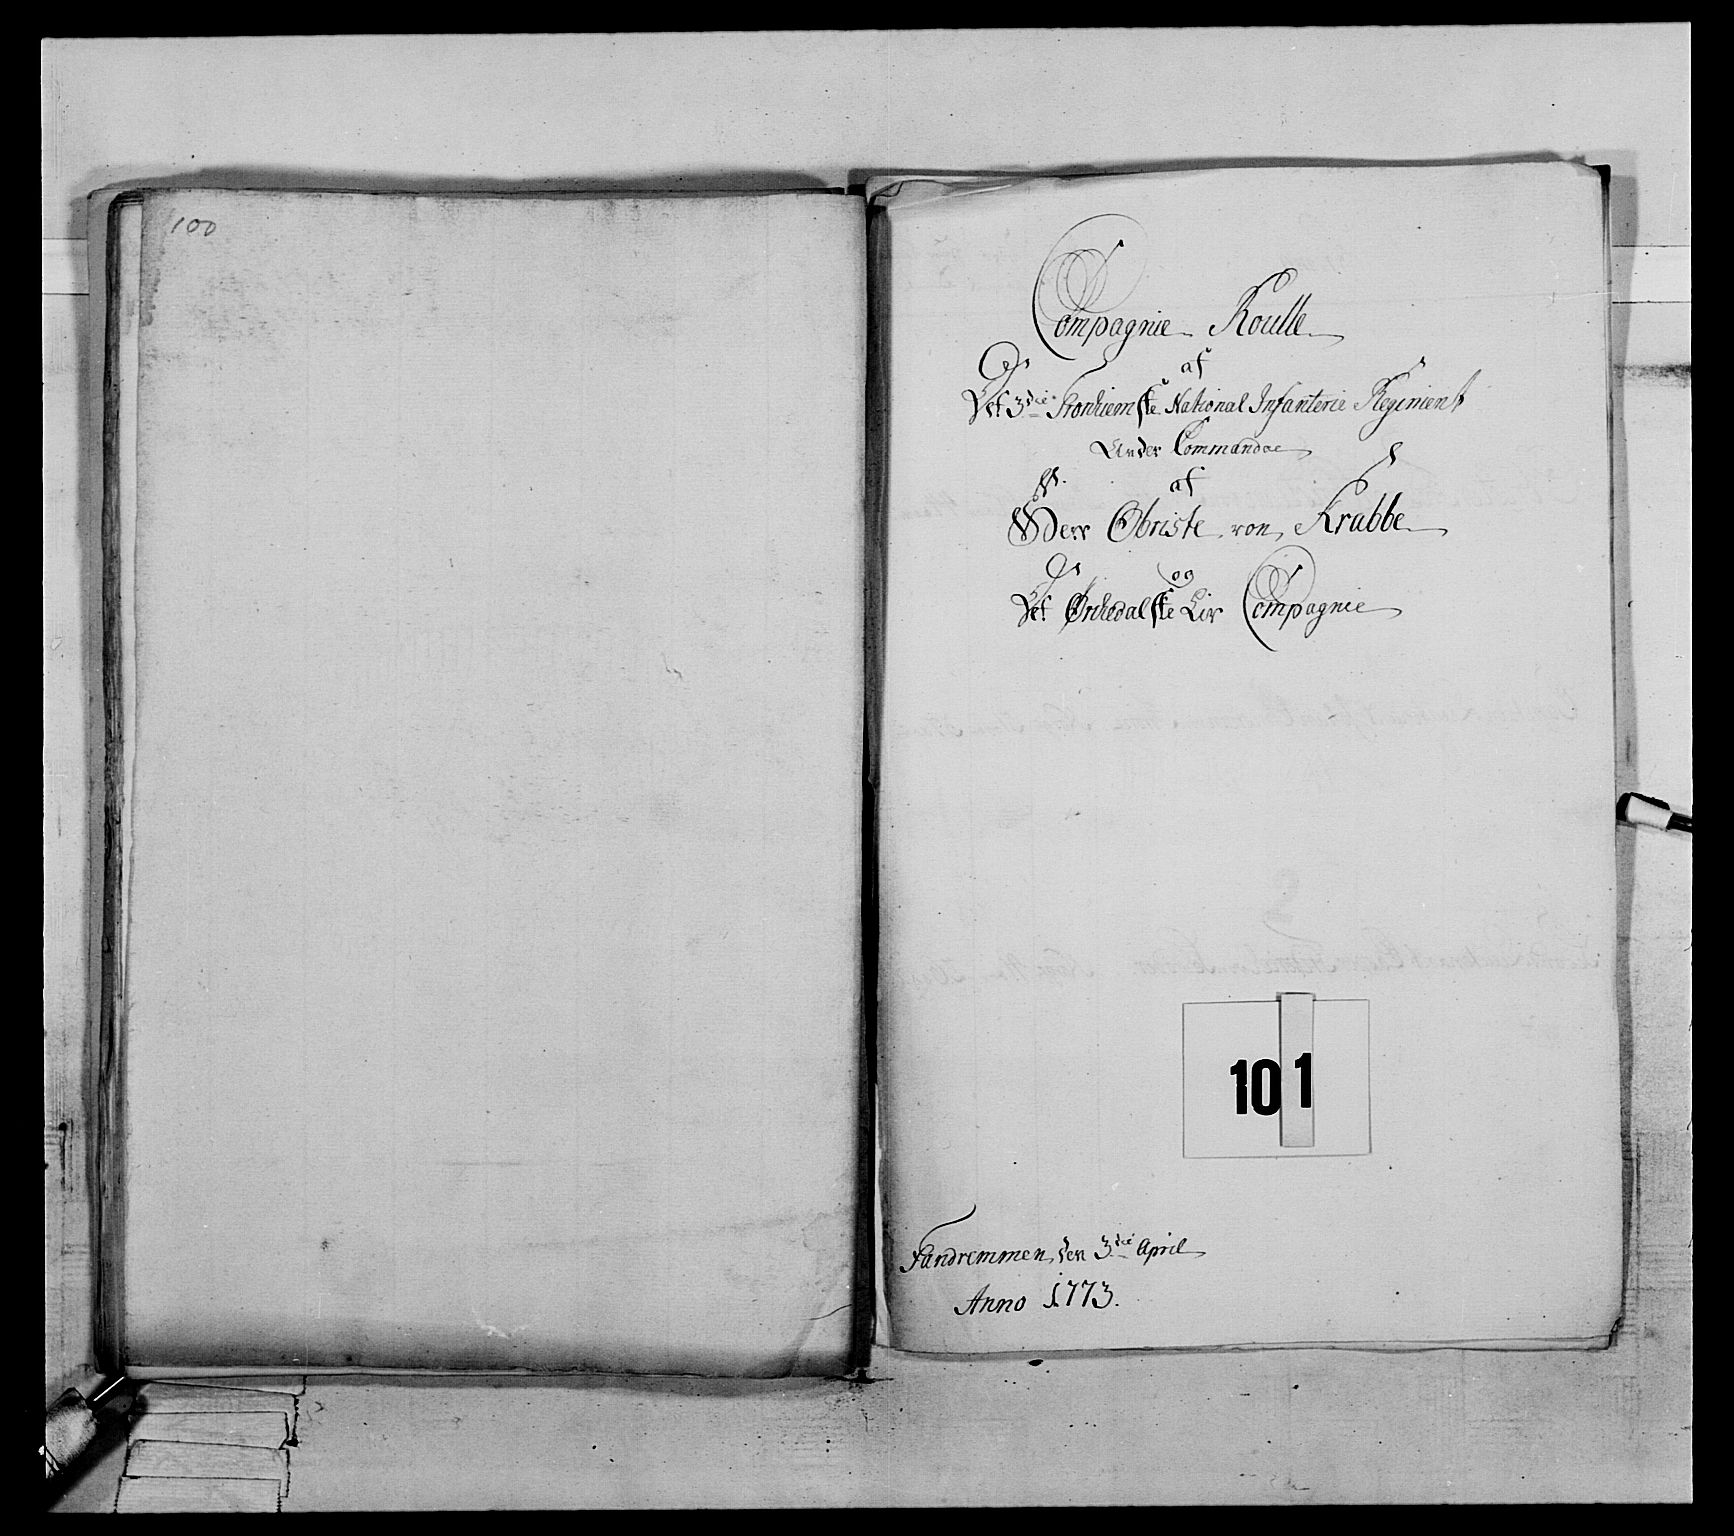 100
Compagnie Roulle
af
Det 3die Tronhiemske National Infanterie Regiment
Under Commandoe
af
Herr Obriste von Krabbe
og
Det Ørkedalske Liv Compagnie
101
Fandremmen den 3die April
Anno 1773.